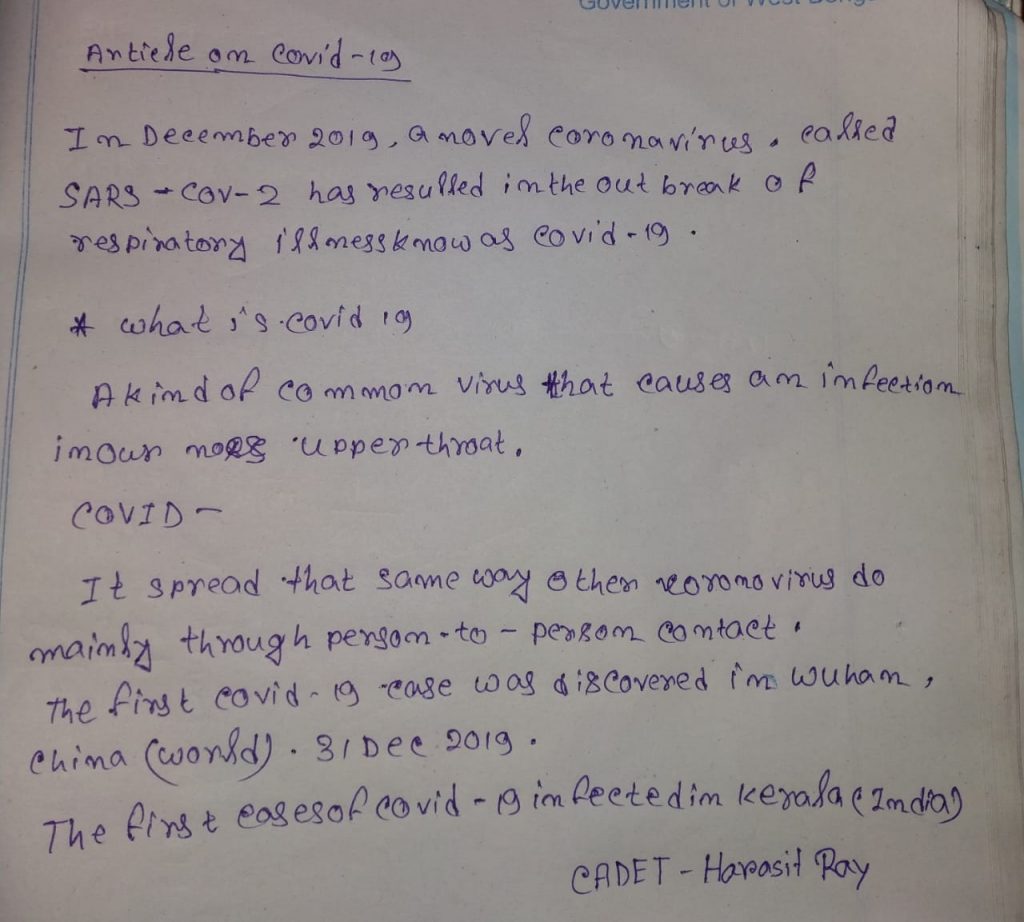 Government of West Beng
Article on Covid-19
In December 2019, a novel coronavirus, called
SARS-COV-2 has resulted in the out break of
respiratory illness know as covid-19.
* what is covid 19
A kind of common virus that causes an infection
in our upper throat.
COVID-
It spread that same way other coronovirus do
mainly through person-to-person contact.
The first covid-19 case was discovered in wuhan,
china (world). 31 Dec 2019.
The first cases of covid-19 infected in kerala (India)
CADET - Harasit Ray